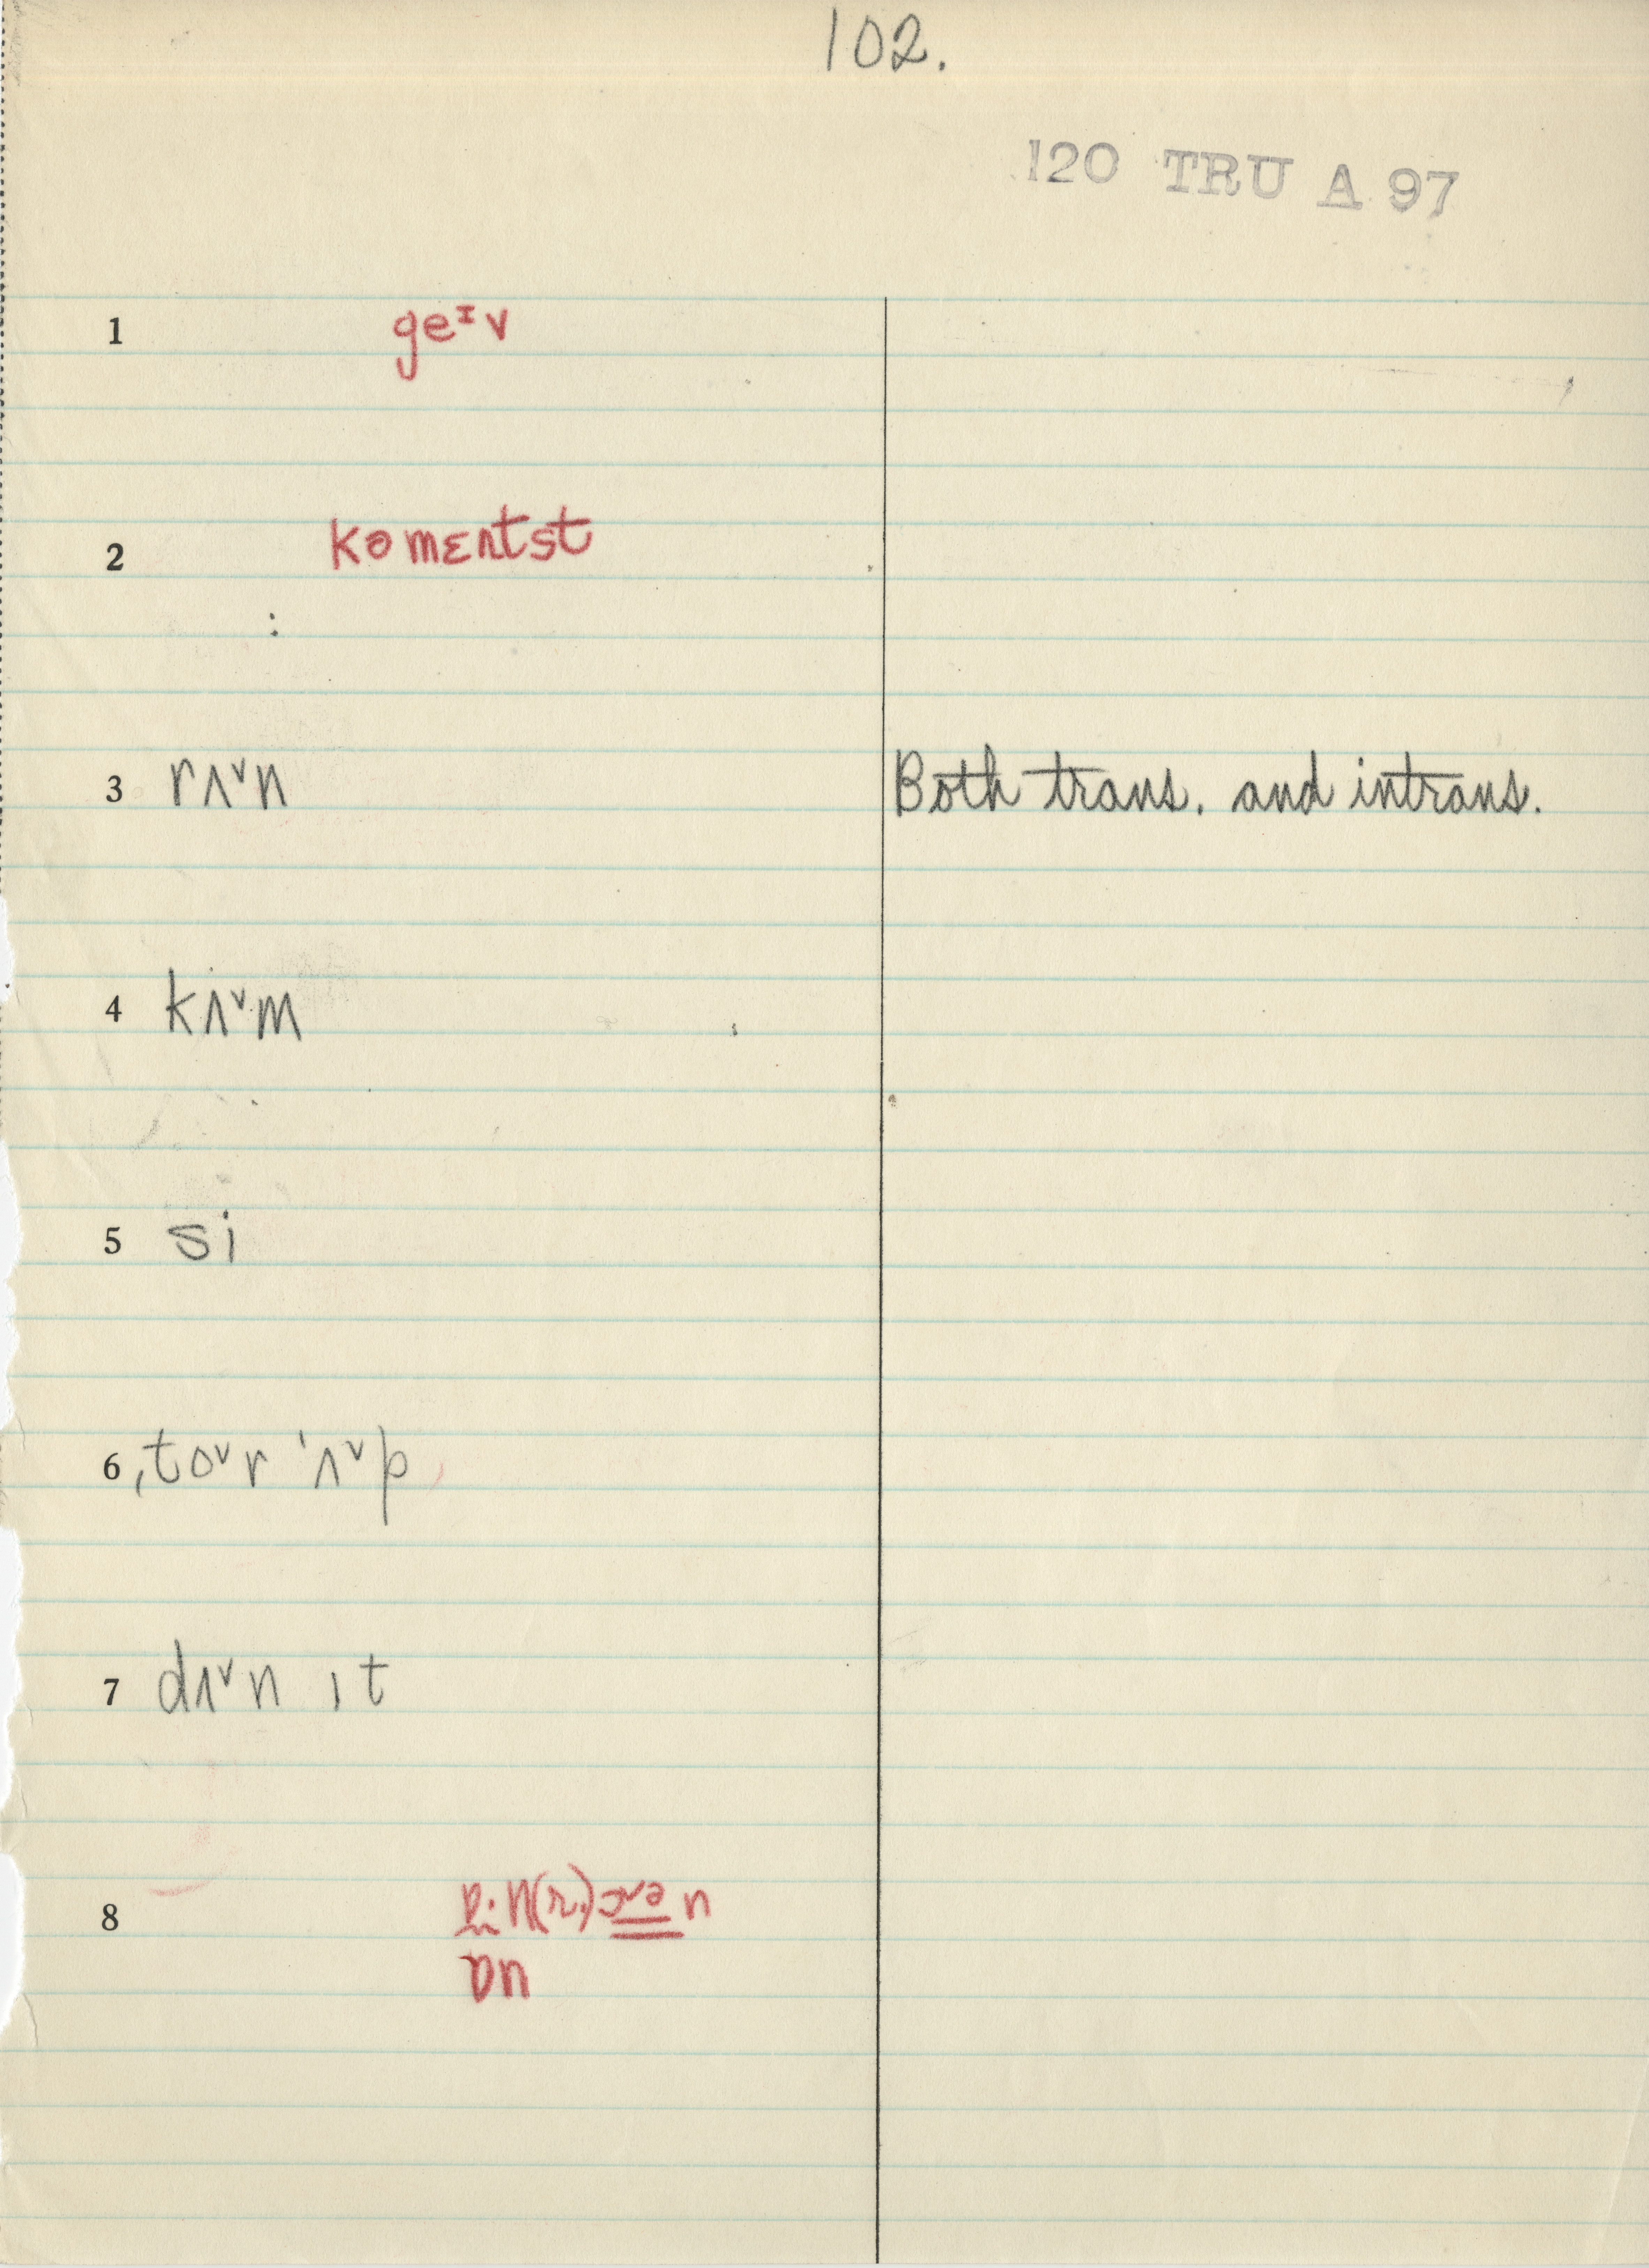 102.
120 TRU A 97
1 geᶦv
2 kəmɛntst
3 rʌ˅n Both trans. and intrans.
4 kʌ˅m
5 si
6 ˌto˅r ˈʌ˅p
7 dʌ˅n ɪt
8
ɒn